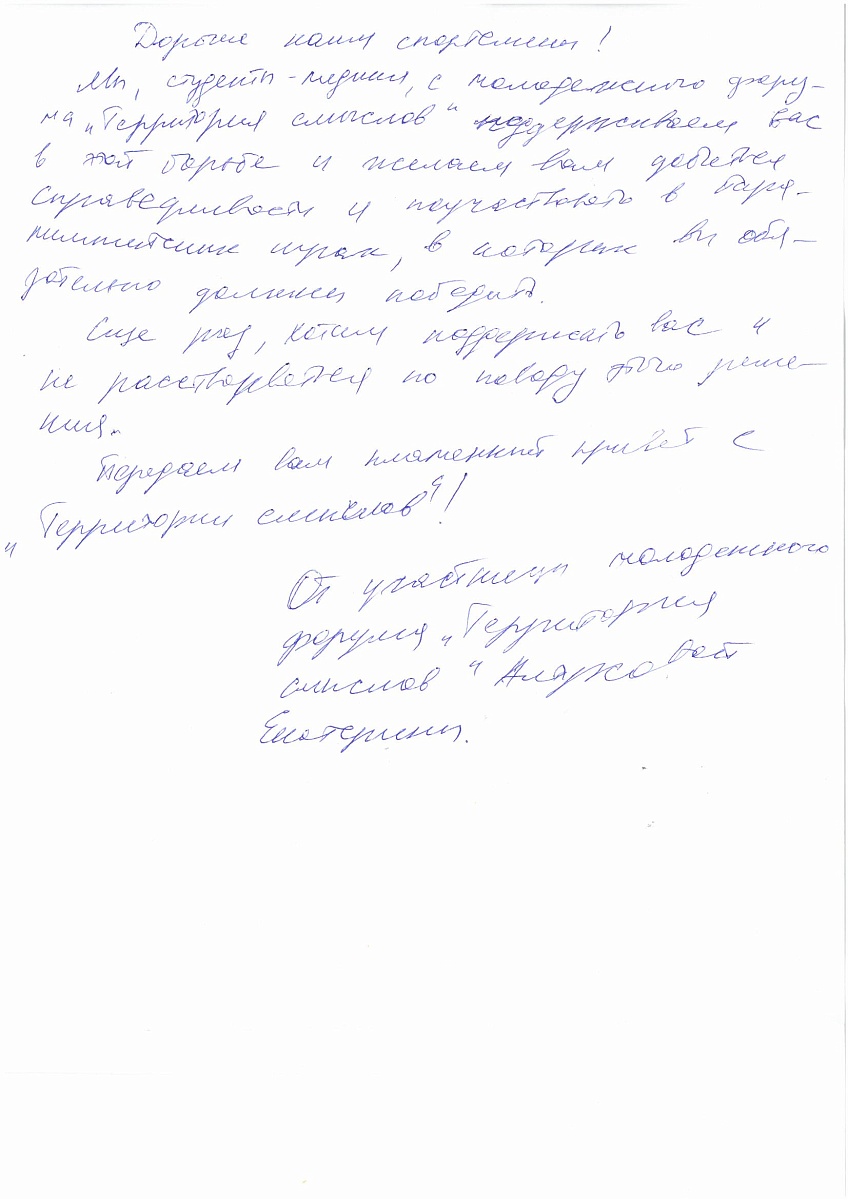 Дорогие наши спортсмены!
Мы, студенты-медики, с молодежного фору-
ма „Территория смыслов" поддерживаем вас
в этой борьбе и желаем вам добиться
справедливости и поучаствовать в Пара-
лимпийских играх, в которых вы обя-
зательно должны победить.
Еще раз, хотим поддержать вас и
не расстраиваться по поводу этого реше-
ния.
Передаем вам пламенный привет с
„Территории смыслов"!
От участницы молодежного
форума „Территория
смыслов"
Екатерины.